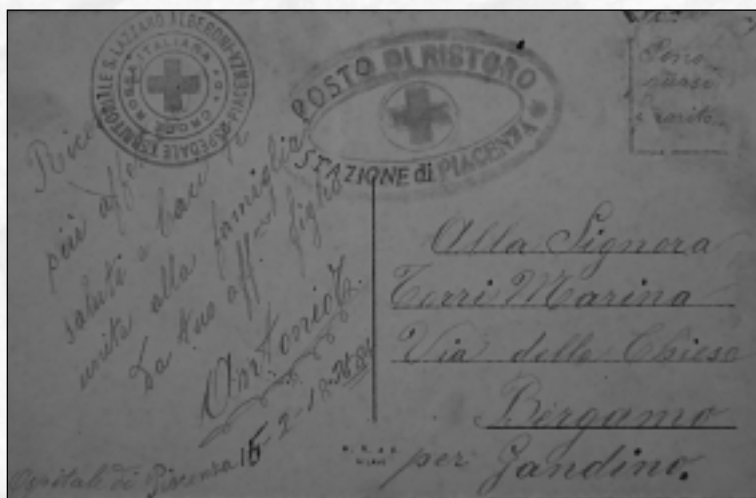 OSPEDALE TERRITORIALE S. LAZZARO ALBERONI-PIACENZA
CROCE ROSSA ITALIANA
POSTO DI RISTORO
STAZIONE di PIACENZA
più
saluti e baci
unite alla famiglia
Da tuo aff. figlio
Antonio
Ospitale di Piacenza 16-2-18
Alla Signora
Torri Marina
Via della Chiesa
Bergamo
per Gandino.